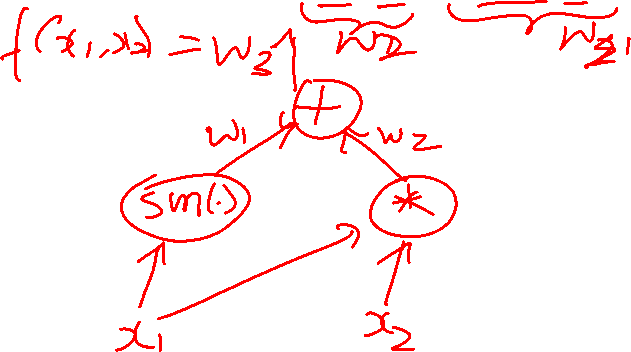 f(x₁,x₂) = w₃ w₂ w₁
+
w₁ w₂
sin(.) *
x₁ x₂